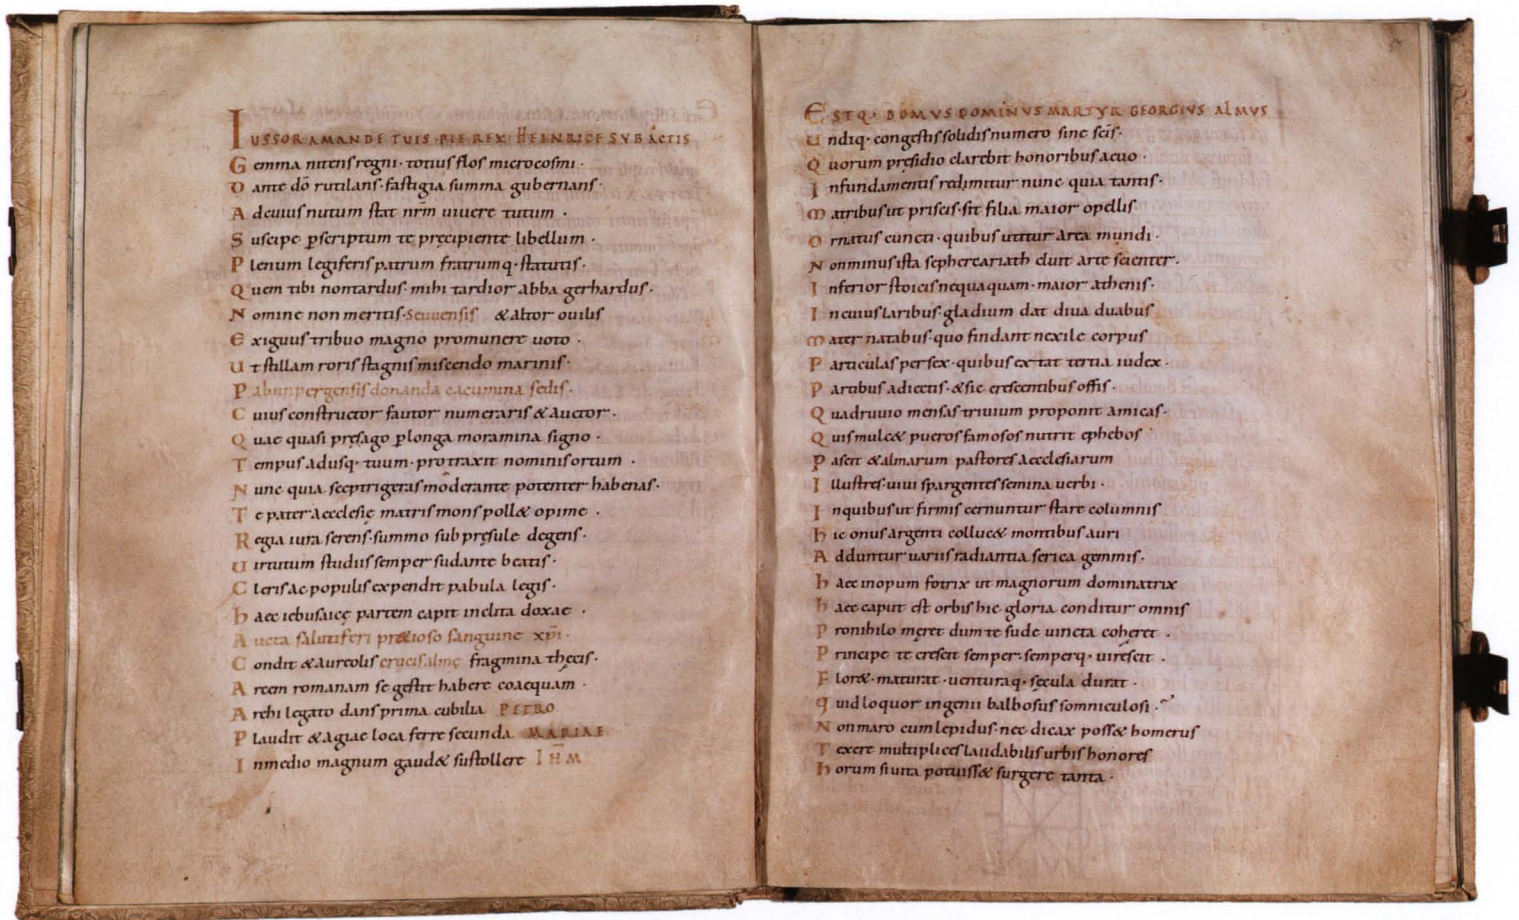 IUSSOR AMANDE TUIS · PIE REX · HEINRICE SUBACTIS
Gemma nitens regni · totius flos microcosmi ·
Dante dō rutilans · fastigia summa gubernans ·
Ad cuius nutum stat nrm̄ uiuere tutum ·
Suscipe pscriptum te pręcipiente libellum ·
Plenum legiferis patrum fratrumq · statutis ·
Quem tibi non tardus · mihi tardior abba gerhardus ·
Nomine non meritis · Seuuensis & altor ouilis
Exiguus tribuo magno pro munere uoto ·
Ut stillam roris stagnis miscendo marinis ·
Pabunpergensis donanda cacumina sedis ·
Cuius constructor fautor numeraris & auctor ·
Quae quasi pręsago plonga moramina signo ·
Tempus adusq · tuum · protraxit nominis ortum ·
Nunc quia sceptrigeras moderante potenter habenas ·
Te pater aecclesię matris mons poll& opime ·
Regia iura serens · summo sub pręsule degens ·
Uirtutum studiis semper sudante beatis ·
Cleris ac populis expendit pabula legis ·
haec iebusaicę partem capit inclita doxae ·
Aucta salutiferi precioso sanguine xpī ·
Condit & aureolis crucis almę fragmina thecis ·
Arcem romanam se gestit habere coaequam ·
Archi legato dans prima cubilia PETRO
Plaudit & agiae loca ferre secunda MARIAE
In medio magnum gaud& sustollere IHM̄
ESTQ · DOMUS DOMINUS MARTYR GEORGIUS ALMUS
Undiq · congestis solidis numero sine scīs ·
Quorum pręsidio clarebit honoribus a cuo ·
In fundamentis redimitur nunc quia tantis ·
Matribus ut priscis · sit filia maior opellis
Ornatus cuncti · quibus utitur area mundi ·
Non minus ista sepher cariath cluit arte scienter ·
Inferior stoicis nequaquam · maior athenis ·
In cuius laribus · gladium dat diua duabus
Mater natabus · quo findant nexile corpus
Particulas per sex · quibus extat tertia iudex ·
Partibus adiectis · & sic crescentibus offis ·
Quadruuio mensas · triuium proponit amicas ·
Quis mulc& pueros famosos nutrit ephebos
Pascit & almarum pastores aecclesiarum
Illustres · uiui spargentes semina uerbi ·
In quibus ut firmis cernuntur stare columnis
hic onus argenti colluc& montibus auri
Adduntur uariis radiantia serica gemmis ·
haec inopum fotrix ut magnorum dominatrix
haec caput est orbis hic gloria conditur omnis
Pro nihilo męret dum te sude uincta coheret ·
Principe te crescit semper · semperq · uirescit ·
Flor& · maturat · uenturaq · sęcula durat ·
quid loquor ingenii balbosus somniculosi ·
Non maro cum lepidus · nec dicax poss& homerus
Texere multiplices laudabilis urbis honores
horum si uita potuiss& surgere tanta ·